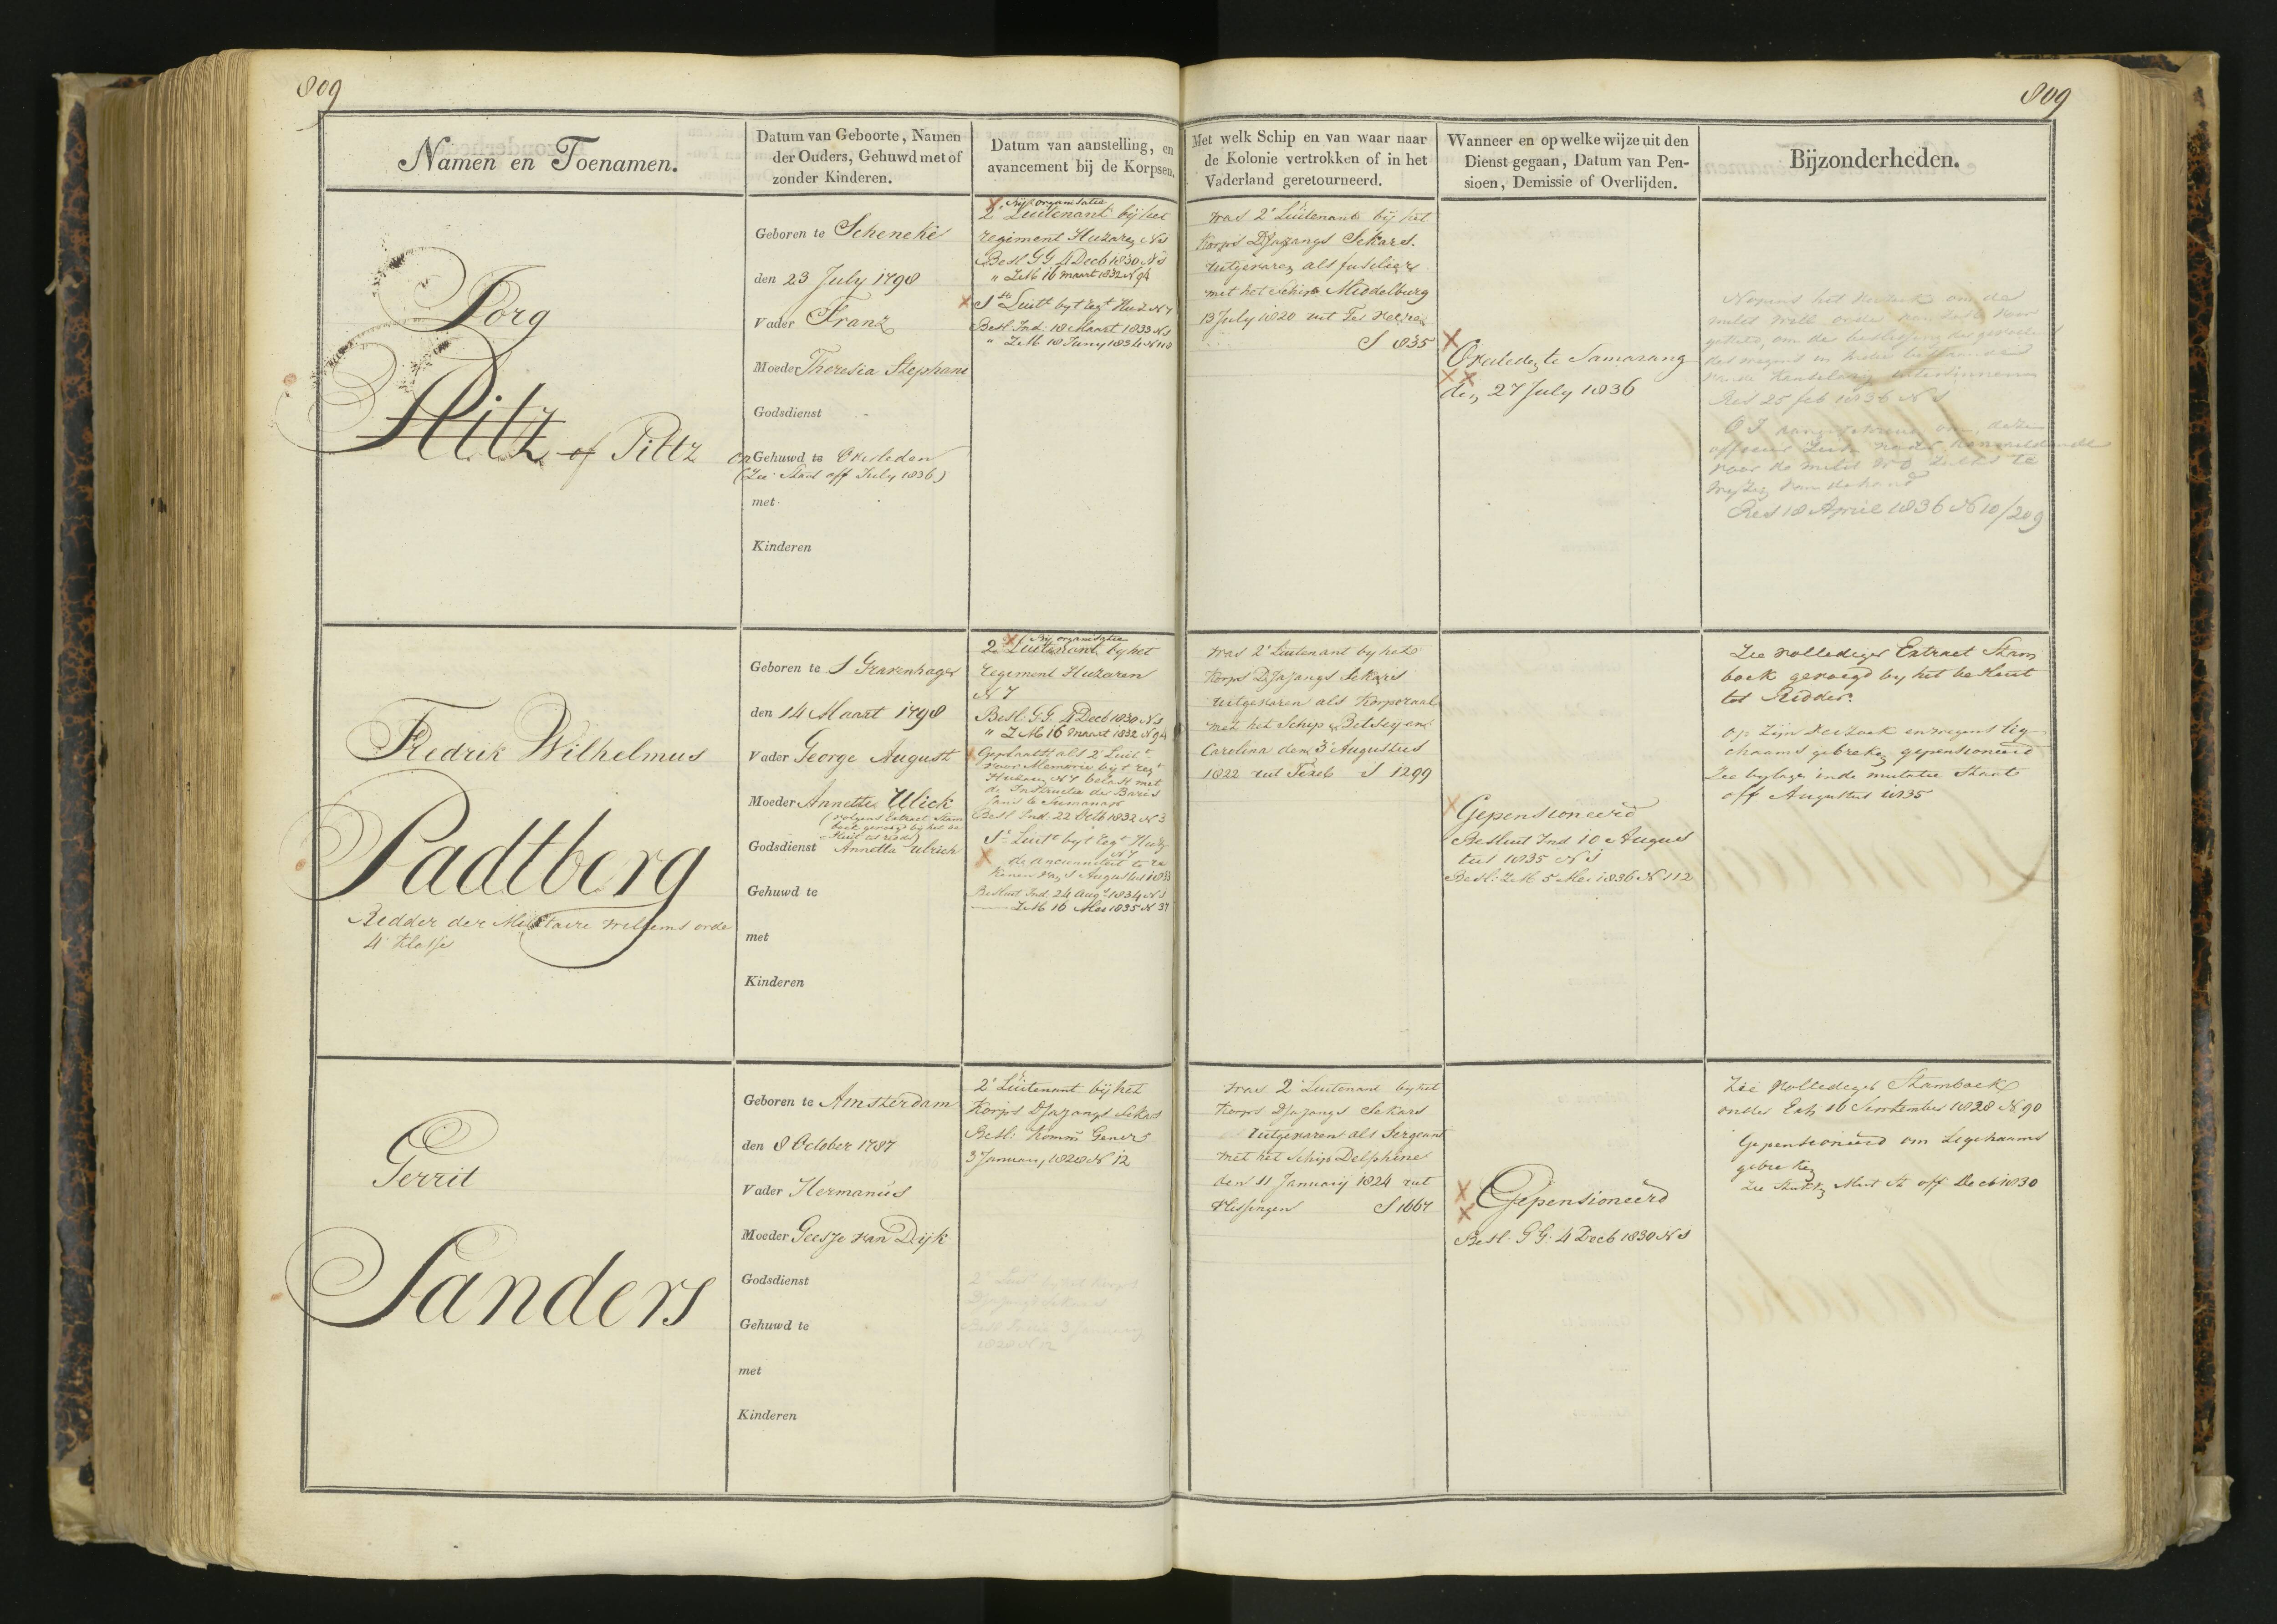 809
809
Namen en Toenamen.
Datum van Geboorte, Namen
der Ouders, Gehuwd met of
zonder Kinderen.
Datum van aanstelling, en
avancement bij de Korpsen.
Met welk Schip en van waar naar
de Kolonie vertrokken of in het
Vaderland geretourneerd.
Wanneer en op welke wijze uit den
Dienst gegaan, Datum van Pen-
sioen, Demissie of Overlijden.
Bijzonderheden.
Jorg
Pitz of Piltz
Geboren te Scheneke
den 23 July 1798
Vader Franz
Moeder Theresia Stephani
Godsdienst -
Gehuwd te Overleden
(Zie Staat off July 1836)
met
Kinderen
Bij organisatie
2e Luitenant bij het
regiment Huzaren No
Besl GG 4 Decb 1830 N 1
" ZM 16 maart 1832 N 94
1ste Luitt byt regt Huz N 7
Besl. Ind: 18 Maart 1833 N 1
" ZM 18 Juny 1834 N 110
was 2e Luitenant bij het
Korps Djajangs Sekars.
uitgevaren als fuselier
met het schip Middelburg
13 July 1820 uit
S 835
Overleden te Samarang
den 27 July 1836
Res 25 feb 1836 N 1
Res 18 April 1836 N 10/209
Fredrik Wilhelmus
Padtberg
Ridder der Militaire Willems orde
4e Klasse
Geboren te S Gravenhage
den 14 Maart 1798
Vader George August
Moeder Annette Ulick
(volgens Extract Stam
boek gevoegd by het be
sluit tot ridder)
Godsdienst Annetta Ulrich
Gehuwd te
met
Kinderen
Bij organisatie
2e Luitenant by het
regiment Huzaren
N 7
Besl: GG. 4 Decb 1830 N 1
" ZM 16 maart 1832 N 94
Geplaatst als 2e Luitt
voor Memorie bijt regt
Huzaren N 7 belast met
de Instructie der Baris
sans te Sumanap
Besl Ind. 22 Octb 1832 N 3
1e Luitt byt regt Huz
N 7
de ancienniteit te re
kenen van 1 Augustus 1833
Besluit Ind 24 Augs 1834 N 1
ZM 16 Mei 1835 N 37
was 2e Luitenant by het
Korps Djajangs Sekars
uitgevaren als Korporaal
met het Schip Betsy en
Carolina den 3 Augustus
1822 uit Texel S 1299
Gepensioneerd
Besluit Ind 10 Augus
tus 1835 N 1
Besl: ZM 5 Mei 1836 N 112
Zie vollediger Extract Stam
boek gevoegd by het besluit
tot Ridder.
Op zijn verzoek en wegens lig-
chaams gebreken gepensioneerd
Zie bylage in de mutatie Staat
off Augustus 1835
Gerrit
Sanders
Geboren te Amsterdam
den 8 October 1787
Vader Hermanus
Moeder Geesje van Dijk
Godsdienst
Gehuwd te
met
Kinderen
2e Luitenant bij het
Korps Djajangs Sekars
Besl: Komm Gener
3 January 1828 N 12
2e Luitt by het Korps
Djajangs Sekars
3 January
1828 N 12
was 2e Luitenant by het
Korps Djajangs Sekars
uitgevaren als Sergeant
met het Schip Delphine
den 11 January 1824 uit
Vlissingen S 1667
Gepensioneerd
Besl. GG. 4 Decb 1830 N 1
Zie vollediger Stamboek
onder Exh 16 September 1828 N 90
Gepensioneerd om Ligchaams
gebreken
Zie Stukken Mut St off Decb 1830